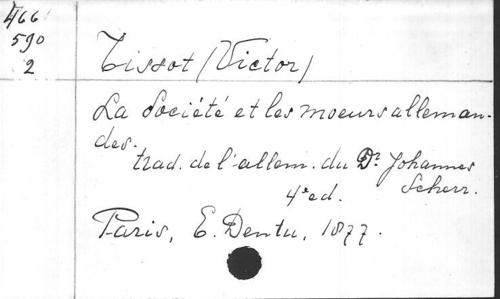 466
590
2
Tissot (Victor)
La Société et les moeurs alleman-
des.
trad. de l'allem. du Dr Johannes
Scherr.
4e ed.
Paris, E. Dentu, 1877.